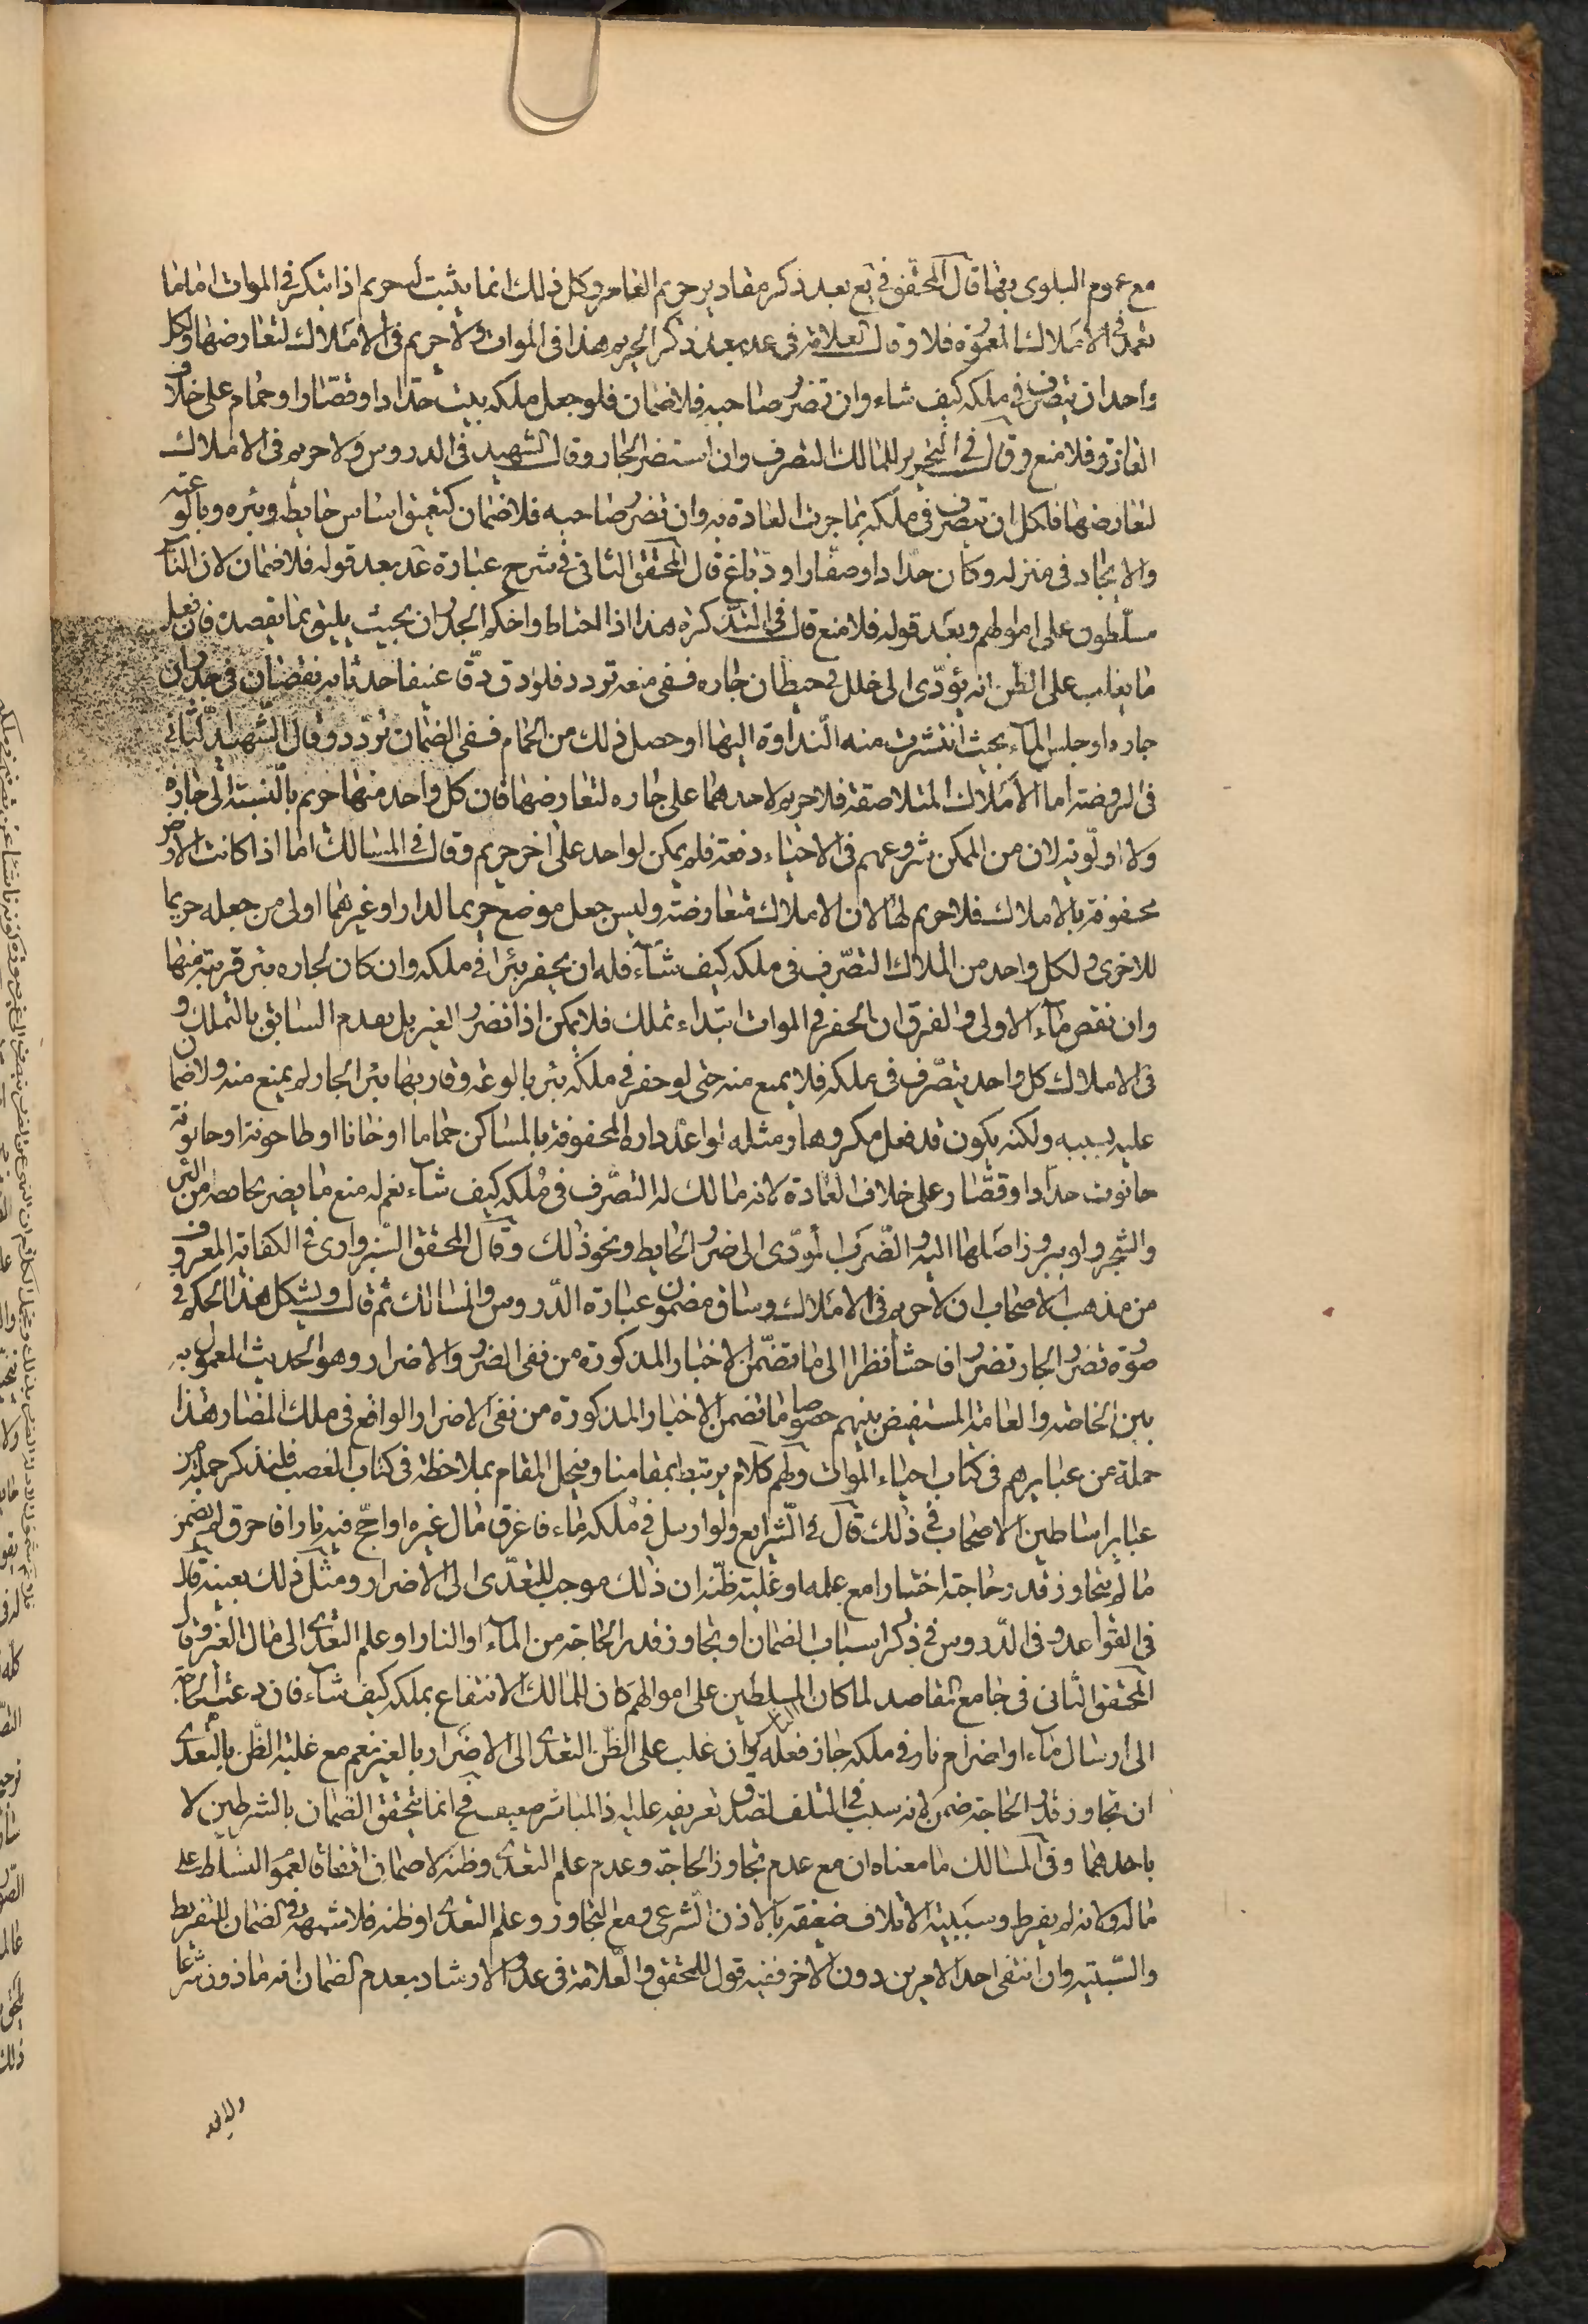 مع عموم البلوى بها قال المحقق فى يع بعد ذكر مقادير حريم العامر وكل ذلك انما يثبت له حريم اذا ابتكر فى الموات اما ما
يعمل فى الاملاك المعمورة فلا وقال العلامة فى عد بعد ذكر الحريم هذا فى الموات ولا حريم فى الاملاك لتعارضها ولكل
واحد ان يتصرف فى ملكه كيف شاء وان تضرر صاحبه فلا ضمان فلو جعل ملكه بيت حداد او قصار او حمام على خلاف
العادة فلا منع وقال فى التحرير للمالك التصرف وان استضر الجار وقال الشهيد فى الدروس ولا حريم فى الاملاك
لتعارضها فلكل ان يتصرف فى ملكه بما جرت العادة به وان تضرر صاحبه فلا ضمان كتعميق اساس حايطه وبئره وبالوعته
والاتحاد فى منزله دكان حداد او صفار او دباغ قال المحقق الثانى فى شرح عبارة عد بعد قوله فلا ضمان لان الناس
مسلطون على اموالهم وبعد قوله فلا منع قال فى التذكرة هذا اذا احتاط واحكم الجدران بحيث يليق بما يقصده فان فعل
ما يغلب على الظن انه يؤدى الى خلل فى حيطان جاره ففى منعه تردد فلو دق دقا عنيفا حدث به نقصان فى جدران
جاره او حبس الماء بحيث انتشرت منه النداوة اليها او حصل ذلك من الحمام ففى الضمان تردد وقال الشهيد الثانى
فى الروضة اما الاملاك المتلاصقة فلا حريم لاحدهما على جاره لتعارضها فان كل واحد منها حريم بالنسبة الى جاره
ولا اولوية لان من الممكن شروعهم فى الاحياء دفعة فلم يمكن لواحد على آخر حريم وقال فى المسالك اما اذا كانت الارض
محفوفة بالاملاك فلا حريم لها لان الاملاك متعارضة وليس جعل موضع حريما لدار او غيرهما اولى من جعله حريما
للاخرى ولكل واحد من الملاك التصرف فى ملكه كيف شاء فله ان يحفر بئرا فى ملكه وان كان لجاره بئر قريبة منها
وان نقص ماء الاولى والفرق ان الحفر فى الموات ابتداء تملك فلا يمكن اذا تضرر الغير بل يقدم السابق بالتملك و
فى الاملاك كل واحد يتصرف فى ملكه فلا يمنع منه حتى لو حفر فى ملكه بئر بالوعة وقاربها بئر الجار لم يمنع منه ولا ضمان
عليه بسببه ولكنه يكون قد فعل مكروها ومثله لو اعد داره المحفوفة بالمساكن حماما او خانا او طاحونة او حانوته
حانوت حداد او قصار على خلاف العادة لانه مالك له التصرف فى ملكه كيف شاء نعم له منع ما يضر بحائطه من البئر
والشجر ولو ببروز اصلها اليه والضرب المؤدى الى ضرر الحايط ونحو ذلك وقال المحقق السبزوارى فى الكفاية المعروف
من مذهب الاصحاب ان لا حريم فى الاملاك وساق مضمون عبارة الدروس والمسالك ثم قال ويشكل هذا الحكم فى
صورة تضرر الجار تضررا فاحشا نظرا الى ما تضمن الاخبار المذكورة من نفى الضرر والاضرار وهو الحديث المعمول به
بين الخاصة والعامة المستفيض بينهم خصوصا ما تضمن الاخبار المذكورة من نفى الاضرار الواقع فى ملك المضار هذا
جملة من عبايرهم فى كتاب احياء الموات ولهم كلام يرتبط بمقامنا وينحل المقام بملاحظته فى كتاب الغصب فلنذكر جملة من
عباير اساطين الاصحاب فى ذلك قال فى الشرايع ولو ارسل فى ملكه ماء فاغرق مال غيره او اجج فيه نارا فاحرق لم يضمن
ما لم يتجاوز قدر حاجته اختيارا مع علمه او غلبة ظنه ان ذلك موجب للتعدى الى الاضرار ومثل ذلك بعينه قال
فى القواعد وفى الدروس فى ذكر اسباب الضمان او تجاوز قدر الحاجة من الماء او النار او علم التعدى الى مال الغير وقال
المحقق الثانى فى جامع المقاصد لما كان المسلطين على اموالهم كان للمالك الانتفاع بملكه كيف شاء فان دعت الحاجة
الى ارسال ماء او اضرام نار فى ملكه جاز فعله وان غلب على الظن التعدى الى الاضرار بالغير نعم مع غلبة الظن بالتعدى
ان تجاوز قدر الحاجة ضمن لانه سبب فى التلف لصدق تعريفه عليه اذ المباشر ضعيف فح انما يتحقق الضمان بالشرطين لا
باحدهما وفى المسالك ما معناه ان مع عدم تجاوز الحاجة وعدم علم التعدى وظنه لا ضمان اتفاقا لعموم التسلط على
ماله ولانه لم يفرط وسببية الاتلاف ضعيفة بالاذن الشرعى ومع التجاوز وعلم التعدى او ظنه فلا شبهة فى الضمان للتفريط
والسببية وان انتفى احد الامرين دون الآخر ففيه قول للمحقق والعلامة فى عد والارشاد بعدم الضمان انه ماذون شرعا